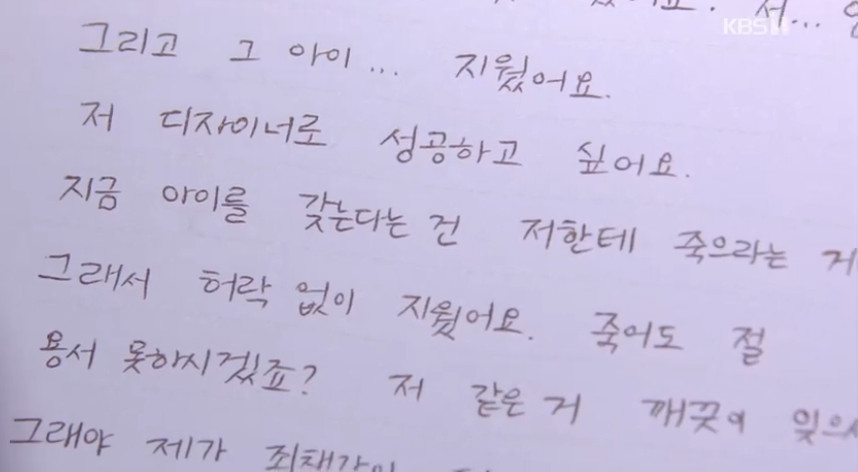 KBS
그리고 그 아이... 지웠어요.
저 디자이너로 성공하고 싶어요.
지금 아이를 갖는다는 건 저한테 죽으라는 거
그래서 허락 없이 지웠어요. 죽어도 절
용서 못하시겠죠? 저 같은 거 깨끗이
그래야 제가